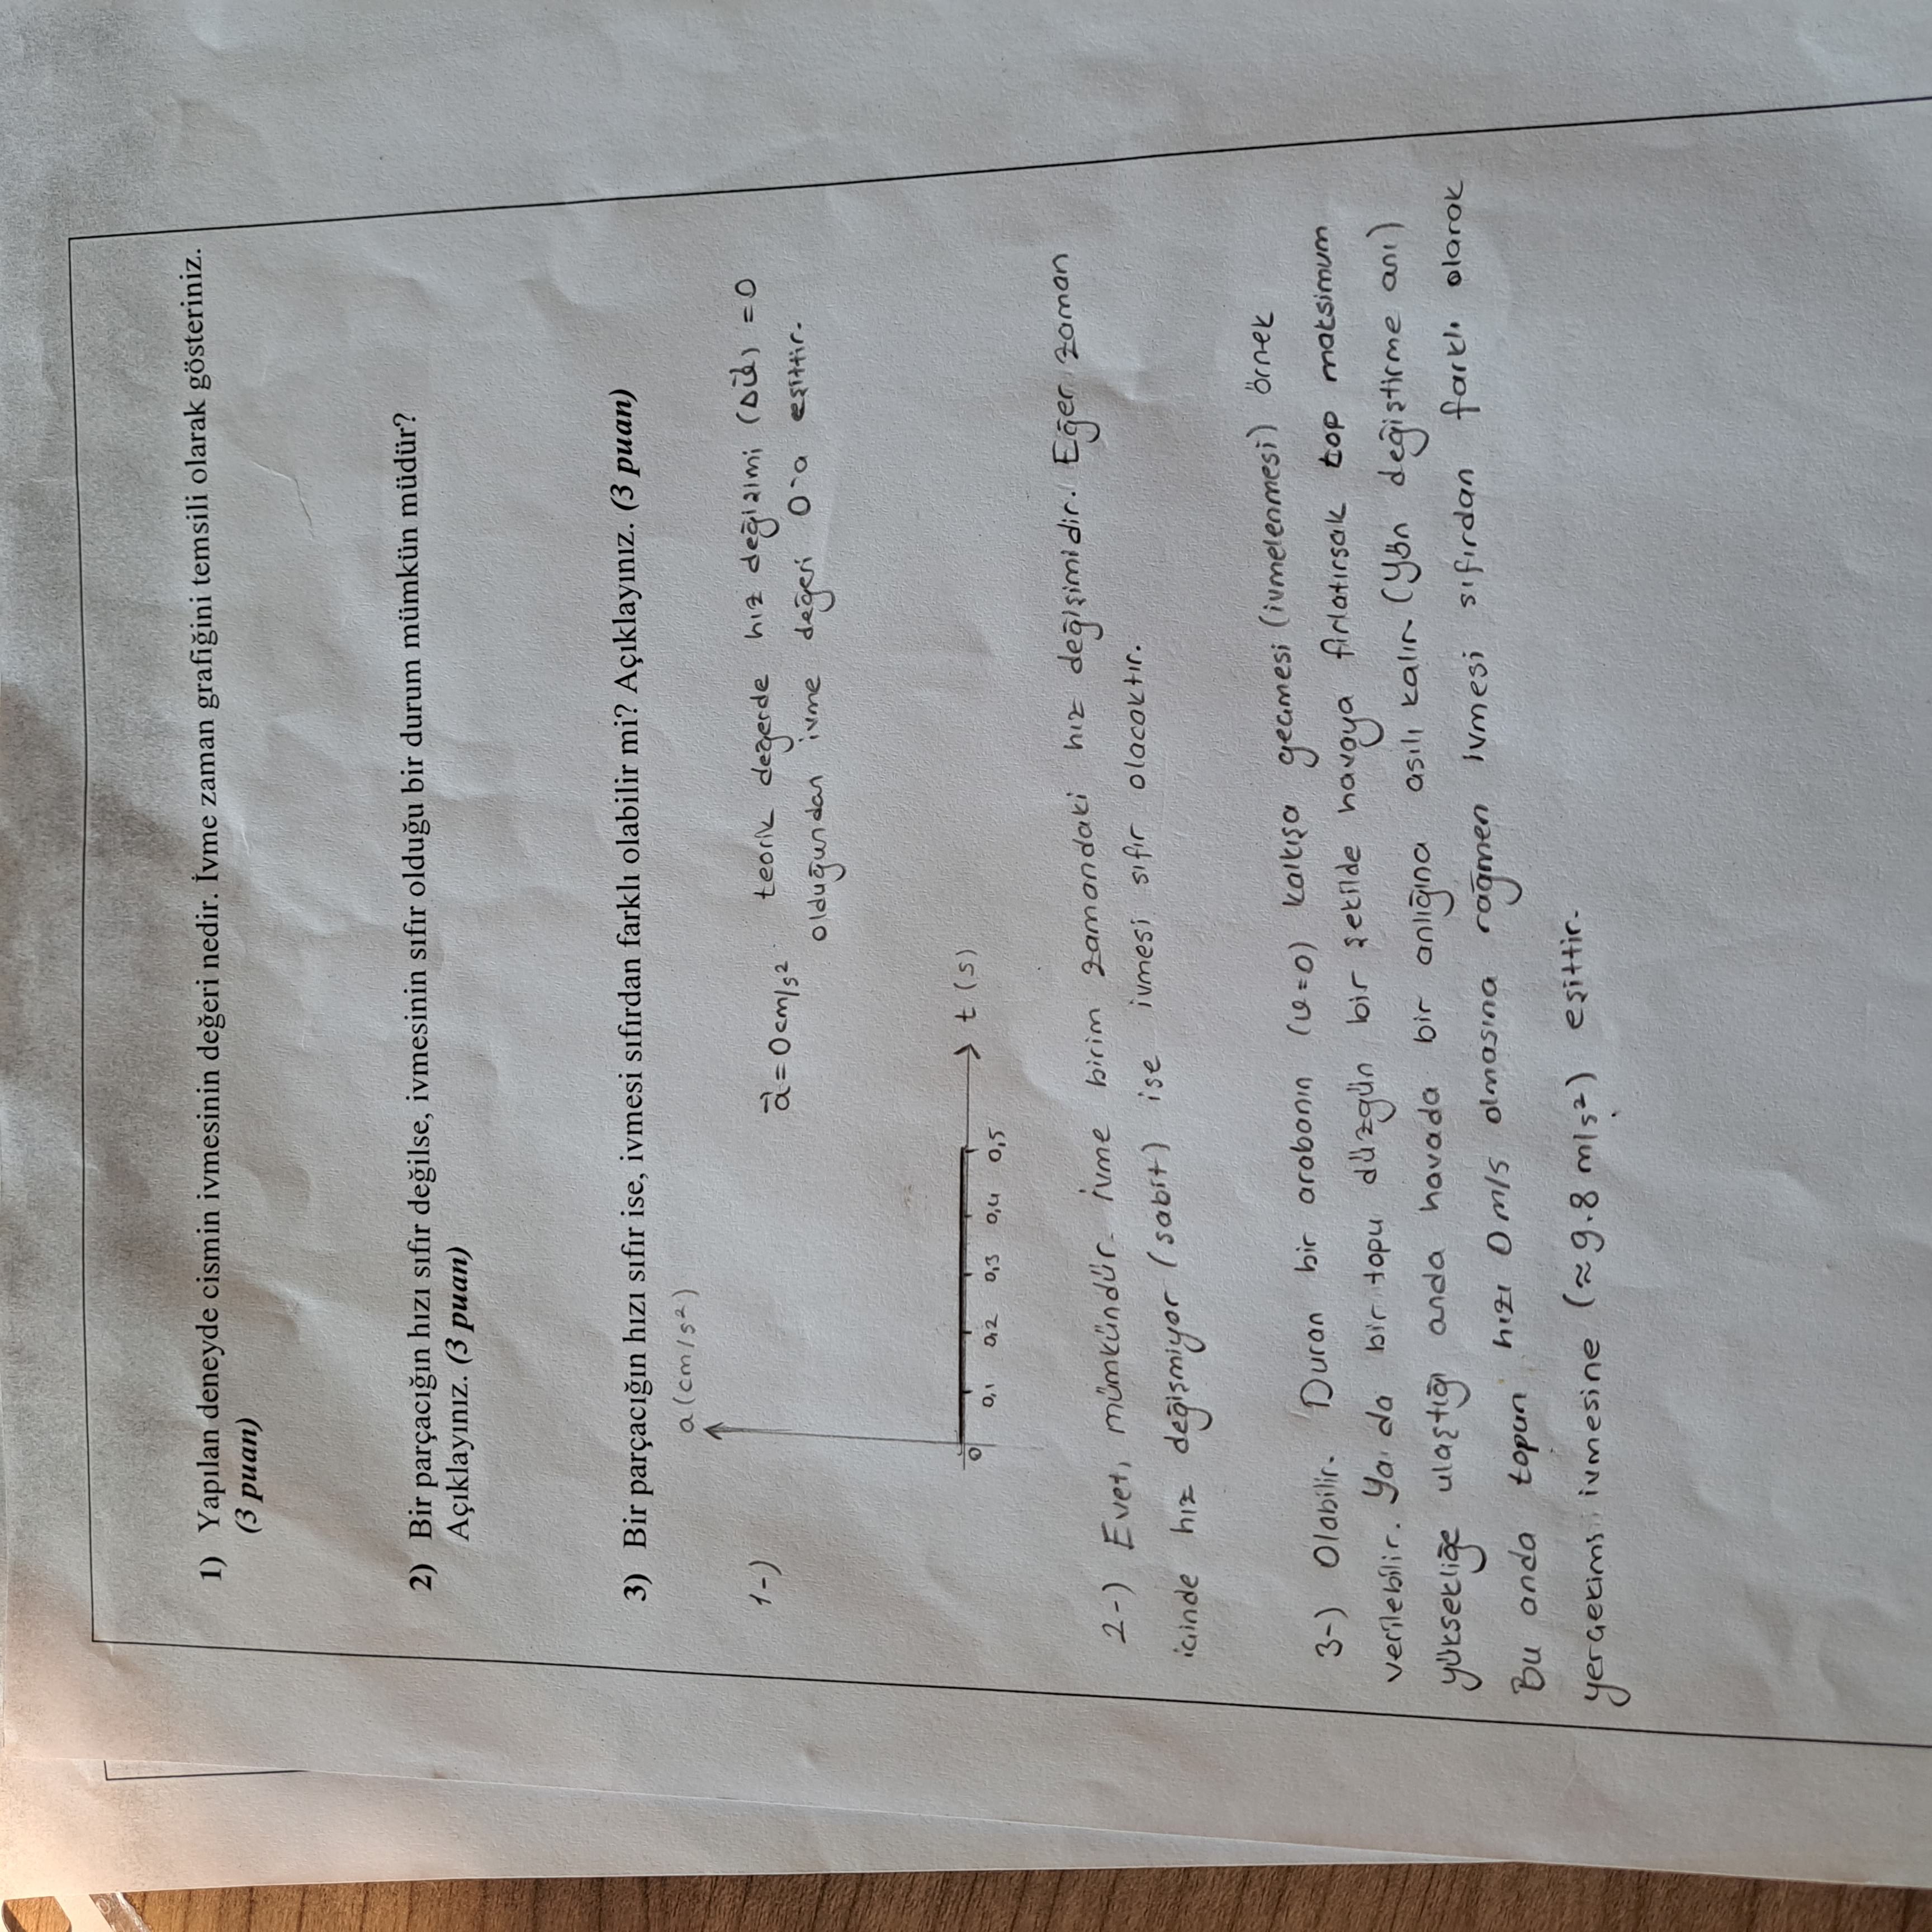 1) Yapılan deneyde cismin ivmesinin değeri nedir. İvme zaman grafiğini temsili olarak gösteriniz.
(3 puan)
2) Bir parçacığın hızı sıfır değilse, ivmesinin sıfır olduğu bir durum mümkün müdür?
Açıklayınız. (3 puan)
3) Bir parçacığın hızı sıfır ise, ivmesi sıfırdan farklı olabilir mi? Açıklayınız. (3 puan)
a (cm/s²)
1-)
a⃗ = 0 cm/s² teorik değerde hız değişimi (Δv⃗) = 0
olduğundan ivme değeri 0'a eşittir.
t (s)
0 0,1 0,2 0,3 0,4 0,5
2-) Evet, mümkündür. İvme birim zamandaki hız değişimidir. Eğer zaman
içinde hız değişmiyor (sabit) ise ivmesi sıfır olacaktır.
3-) Olabilir. Duran bir arabanın (v=0) kalkışa geçmesi (ivmelenmesi) örnek
verilebilir. Ya da bir topu düzgün bir şekilde havaya fırlatırsak top maksimum
yüksekliğe ulaştığı anda havada bir anlığına asılı kalır (Yön değiştirme anı)
Bu anda topun hızı 0 m/s olmasına rağmen ivmesi sıfırdan farklı olarak
yerçekimi ivmesine (≈9.8 m/s²) eşittir.